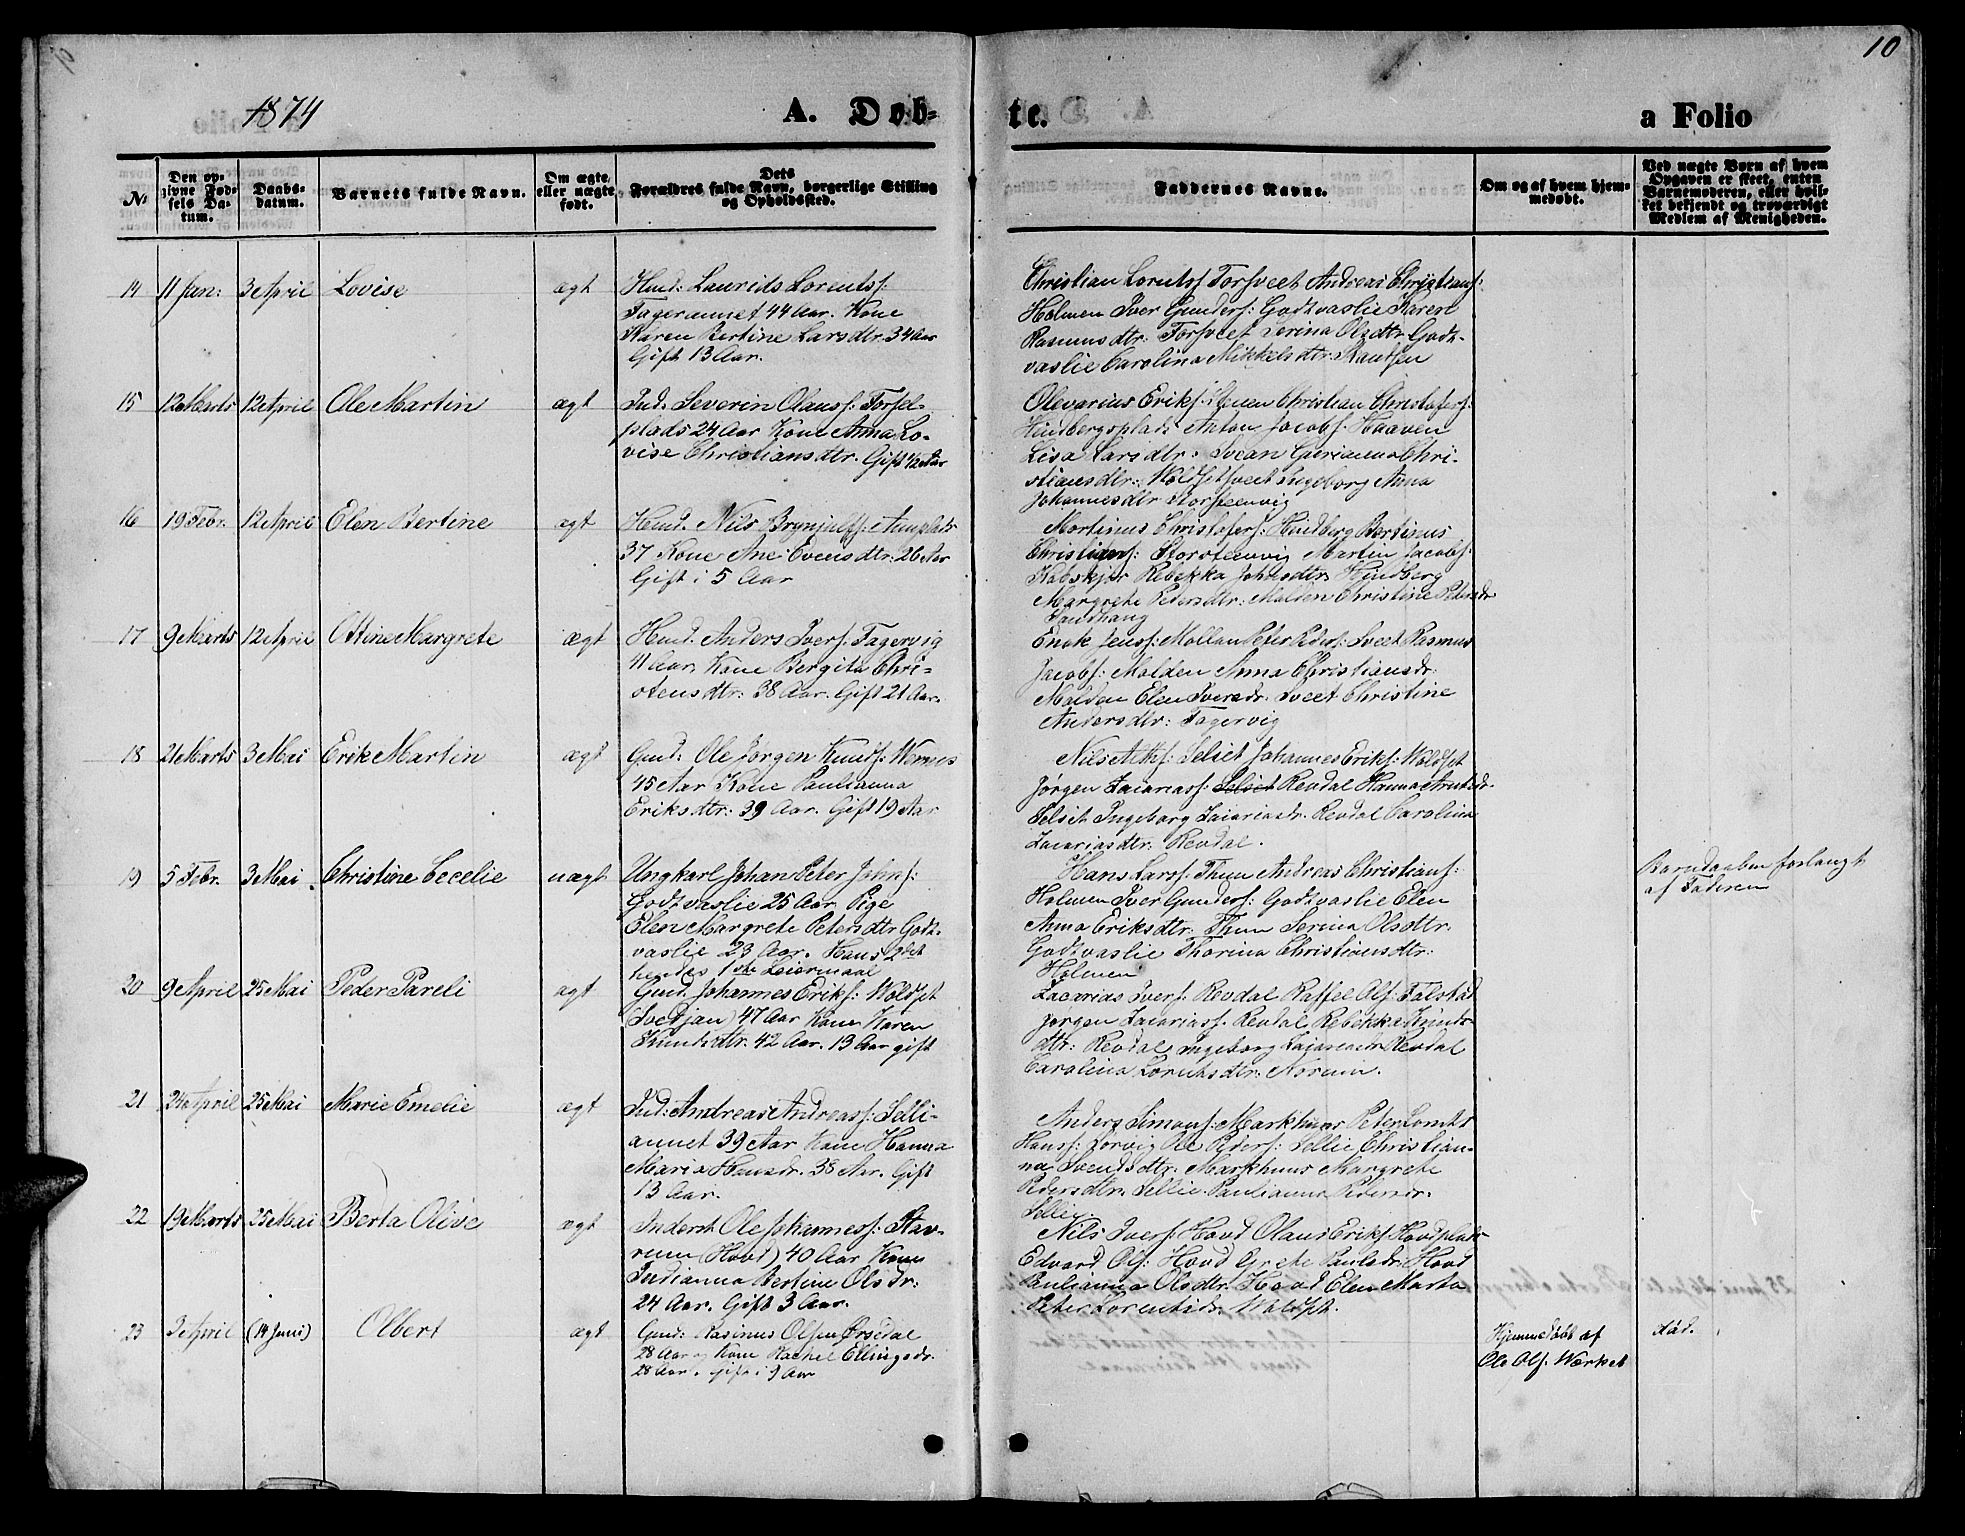 10
1874
A. Døb-
te.
a Folio
No
Den op-
givne Fød-
sels Da-
tum.
Daabs-
datum.
Barnets fulde Navn.
Om ægte
eller uægte
født.
Dets
Forældres fulde Navn, borgerlige Stilling
og Opholdssted.
Faddernes Navne.
Om og af hvem hjem-
medøbt.
Ved uægte Børn af hvem
Opgaven er skeet, enten
Barnemoderen, eller hvil-
ket bekjendt og troværdigt
Medlem af Menigheden.
14 11 Jan: 3 April Lovise ægt
Huusd: Laurids Lorentss:
Fageraunet 44 Aar. Kone
Karen Bertine Larsdtr. 34 Aar
Gift 13 Aar.
Christian Lorntss Torsveet Andreas Christians:
Holmen Iver Gunders: Godtvaslie Karen
Rasmusdtr: Torsveet Serina Olsdtr Godt-
vaslie Carolina Mikkelsdtr:
15 12 Marts 12 April Ole Martin ægt
Ind: Severin Olauss: Torsel-
plads 24 Aar Kone Anna Lo-
vise Christiansdtr. Gift 1/2 Aar
Olevarius Eriks: Christian Christofers:
Hindbergsplads Anton Jacobs: Haaven
Lisa Larsdtr: Svean Chri-
stiansdtr: Woldsetsveet Ingeborg Anna
Johannesdtr Storsteenvig
16 19 Febr. 12 April Elen Bertine ægt
Huusd. Nils Brynjulfs:
37 Kone Ane Evensdtr: 26 Aar
Gift i 5 Aar
Mortinus Christofers: Hindberg Bertinus
Christians: Storsteenvig Martin Jacobs:
Rebekka Johnsdtr. Hindberg
Margrete Pedersdtr: Molden Christine Petersdr

17 9 Marts 12 April Ottine Margrete ægt
Huusd. Anders Ivers: Fagervig
41 Aar, Kone Bergita Chri-
stensdtr: 38 Aar. Gift 21 Aar.
Enok Jenss: Mollan Peter Peders: Sveet Rasmus
Jacobs: Molden Anna Christiansdr:
Molden Elen Iversdr: Sveet Christine
Andersdtr: Fagervig
18 21 Marts 3 Mai Erik Martin ægt
Gmd: Ole Jørgen Knuts: Wernes
45 Aar Kone Paulianna
Eriksdtr: 39 Aar. Gift 19 Aar
Nils Selset Johannes Eriks: Woldset
Jørgen Zaiariass: Selset Revdal Hanna
Selset Ingeborg Zaiariasdr. Revdal Carolina
Zaiariasdtr: Revdal.
19 5 Febr. 3 Mai. Christine Cecelie uægt
Ungkarl Johan Peter Johns:
Godtvaslie 25 Aar. Pige
Elen Margrete Petersdtr Godt-
vaslie 23 Aar. Hans 2det
hendes 1ste Leiermaal
Hans Larss: Thun Andreas Christians:
Holmen Iver Gunders: Godtvaslie Elen
Anna Eriksdtr. Thun Serina Olsdtr.
Godtvaslie Thorina Christiansdtr:
Holmen
Barnedaaben forlangt
af Faderen
20 9 April 25 Mai Peder Pareli ægt
Gmd: Johannes Eriks: Woldset
(Svedjan) 47 Aar Kone Karen
Knudsdtr. 42 Aar. 13 Aar gift
Zacarias Ivers: Revdal Raffel Ols: Falstad
Jørgen Zaiariass. Revdal Rebekka Knuds-
dtr: Revdal, Ingeborg Zaiariasdr Revdal
Carolina Lorntsdtr: Norum.
21 24 April 25 Mai Marie Emelie ægt
Ind: Andreas Andreass: Selli-
aunet 39 Aar Kone Hanna
Maria Hansdr. 38 Aar. Gift
13 Aar.
Anders Simons: Markhus Peter Lornts
Hanss: Lorvig Ole Peders: Sellie Christian-
na Svendsdtr: Markhuus Margrete
Pedersdtr. Sellie Paulianna Pedersdr.
Sellie.
22 19 Marts 25 Mai Berta Olive ægt
Inderst Ole Johanness: Stav-
rum (Hovd) 40 Aar Kone
Indianna Bertine Olsdr:
24 Aar. Gift 3 Aar.
Nils Ivers: Hovd Olaus Eriks Hovdplads
Edvard Ols: Hovd Grete Paulsdr: Hovd
Paulianna Olsdtr. Hovd Elen Marta
Peter Lorentsdr. Woldset.
23 2 April (14 Juni) Olbert ægt
Gmd: Rasinus Olsen Ørsedal
28 Aar og Kone Rachel Ellingsdr.
28 Aar. gift i 9 Aar
Hjemmedøbt af
Ole Ols. Wærket
død.